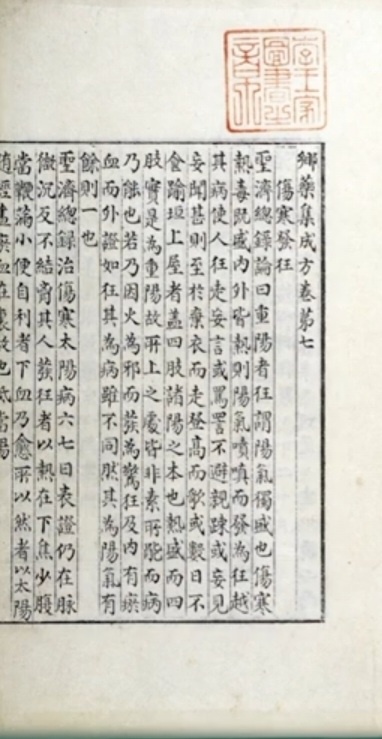 鄉藥集成方卷第七
傷寒發狂
聖濟總錄論曰重陽者狂謂陽氣獨盛也傷寒
熱毒旣盛內外皆熱則陽氣噴嗔而發為狂越
其病使人狂走妄言或罵詈不避親踈或妄見
妄聞甚則至於棄衣而走登高而歌或數日不
食踰垣上屋者盖四肢諸陽之本也熱盛而四
肢實是為重陽故所上之處皆非素所能而病
乃能也若乃因火為邪而發為驚狂及內有瘀
血而外證如狂其為病雖不同然其為陽氣有
餘則一也
聖濟總錄治傷寒太陽病六七日表證仍在脉
微沉反不結胷其人發狂者以熱在下焦少腹
當鞕滿小便自利者下血乃愈所以然者以太陽